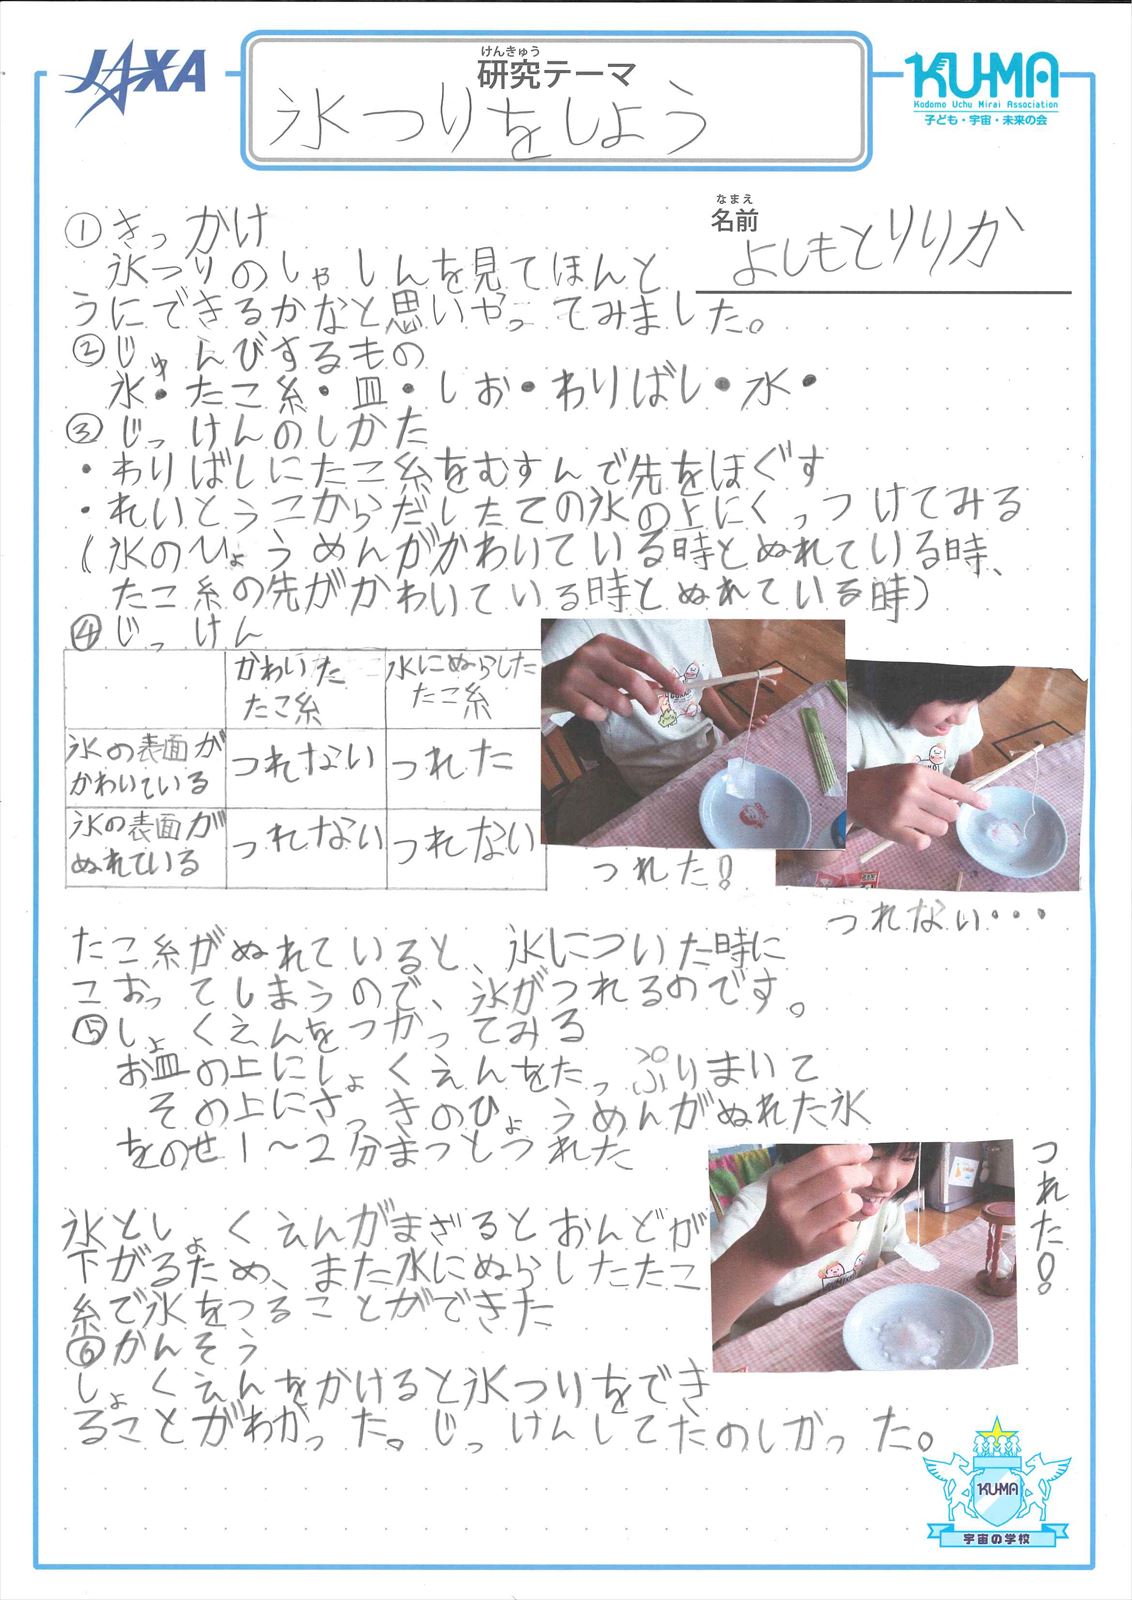 JAXA
けんきゅう
研究テーマ
氷つりをしよう
KU-MA
Kodomo Uchu Mirai Association
子ども・宇宙・未来の会
なまえ
名前
よしもとりりか
①きっかけ
氷つりのしゃしんを見てほんと
うにできるかなと思いやってみました。
②じゅんびするもの
氷・たこ糸・皿・しお・わりばし・水・
③じっけんのしかた
・わりばしにたこ糸をむすんで先をほぐす
・れいとうこからだしたての氷の上にくっつけてみる
(氷のひょうめんがかわいている時とぬれている時、
たこ糸の先がかわいている時とぬれている時)
④じっけん
かわいた
たこ糸
水にぬらした
たこ糸
氷の表面が
かわいている
つれない
つれた
氷の表面が
ぬれている
つれない
つれない
つれた!
つれない・・・
たこ糸がぬれていると、氷についた時に
こおってしまうので、氷がつれるのです。
⑤しょくえんをつかってみる
お皿の上にしょくえんをたっぷりまいて
その上にさっきのひょうめんがぬれた氷
をのせ1~2分まつとつれた
つれた!
氷としょくえんがまざるとおんどが
下がるため、また水にぬらしたたこ
糸で氷をつることができた
⑥かんそう
しょくえんをかけると氷つりをでき
ることがわかった。じっけんしてたのしかった。
KU-MA
宇宙の学校